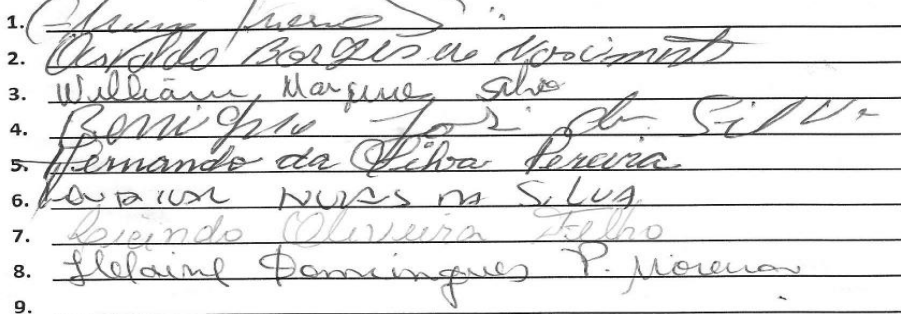 1.
2. Osvaldo Borges do Nascimento
3. William Marques Silva
4. Benigno José da Silva
5. Fernando da Silva Pereira
6. NUNES DA SILVA
7. Oliveira Filho
8. Helaine Domingues P. Moreira
9.